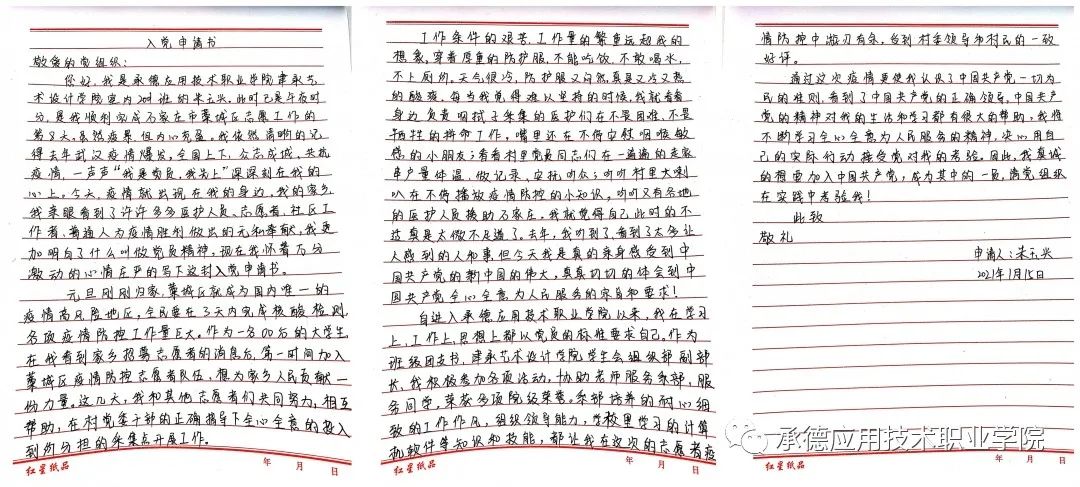 入党申请书
敬爱的党组织：
您好，我是承德应用技术职业学院建承艺
术设计学院室内2001班的朱玉兴。此时已是午夜时
分，是我顺利完成石家庄市藁城区志愿工作的
第8天。虽然疲累，但内心充盈。我依然清晰的记
得去年武汉疫情爆发，全国上下，众志成城，共抗
疫情，一声声“我是党员，我先上”深深刻在我的
心上。今天，疫情就出现在我的身边，我的家乡，
我亲眼看到了许许多多医护人员、志愿者、社区工
作者、普通人为疫情胜利做出的无私奉献，我更
加明白了什么叫做党员精神，现在我怀着万分
激动的心情庄严的写下这封入党申请书。
元旦刚刚归家，藁城区就成为国内唯一的
疫情高风险地区，全民要在3天内完成核酸检测，
各项疫情防控工作量巨大。作为一名00后的大学生
在我看到家乡招募志愿者的消息后，第一时间加入
藁城区疫情防控志愿者队伍，想为家乡人民贡献一
份力量。这几天，我和其他志愿者们共同努力，相互
帮助，在村党委干部的正确指导下全心全意的投入
到所分担的采集点开展工作。
红星纸品 年 月 日
工作条件的艰苦，工作量的繁重远超我的
想象，穿着厚重的防护服，不能吃饭，不敢喝水，
不上厕所。天气很冷，防护服又闷热，真是又冷又热
的酸爽。每当我觉得难以坚持的时候，我就看看
身边负责咽拭子采集的医护们在不畏困难、不畏
牺牲的拼命工作，嘴里还在不停安慰咽喉敏
感的小朋友；看看村里党员同志们在一遍遍的走家
串户量体温、做记录、安抚听众；听听村里大喇
叭在不停播放疫情防控的小知识，听听又有各地
的医护人员援助石家庄。我就觉得自己此时的不
适真是太微不足道了。去年，我听到了、看到了太多让
人感到的人和事，但今天我是真的亲身感受到中
国共产党的新中国的伟大，真真切切的体会到中
国共产党全心全意为人民服务的宗旨和要求！
自进入承德应用技术职业学院以来，我在学习
上、工作上、思想上都以党员的标准要求自己。作为
班级团支书、建承艺术设计学院学生会组织部副部
长，我积极参加各项活动，协助老师服务系部，服
务同学，荣获多项院级荣誉。系部培养的耐心细
致的工作作风，组织领导能力，学校里学习的计算
机软件等知识和技能，都让我在这次的志愿者疫
红星纸品 年 月 日
情防控中游刃有余，受到村委领导和村民的一致
好评。
通过这次疫情更使我认识了中国共产党一切为
民的准则，看到了中国共产党的正确领导，中国共产
党的精神对我的生活和学习都有很大的帮助，我将
不断学习全心全意为人民服务的精神，决心用自
己的实际行动接受党对我的考验。因此，我真诚
的想要加入中国共产党，成为其中的一员，请党组织
在实践中考验我！
此致
敬礼
申请人：朱玉兴
2021年1月15日
承德应用技术职业学院
红星纸品 年 月 日